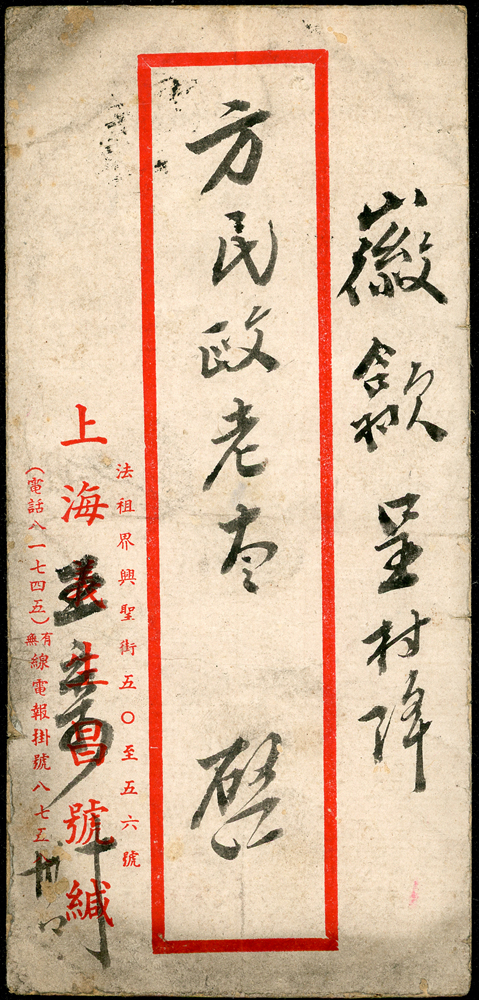 徽歙呈村降
方民政老
啓
法租界興聖街五〇至五六號
上海生昌號緘
(電話八一七四五)有無線電報掛號八七五